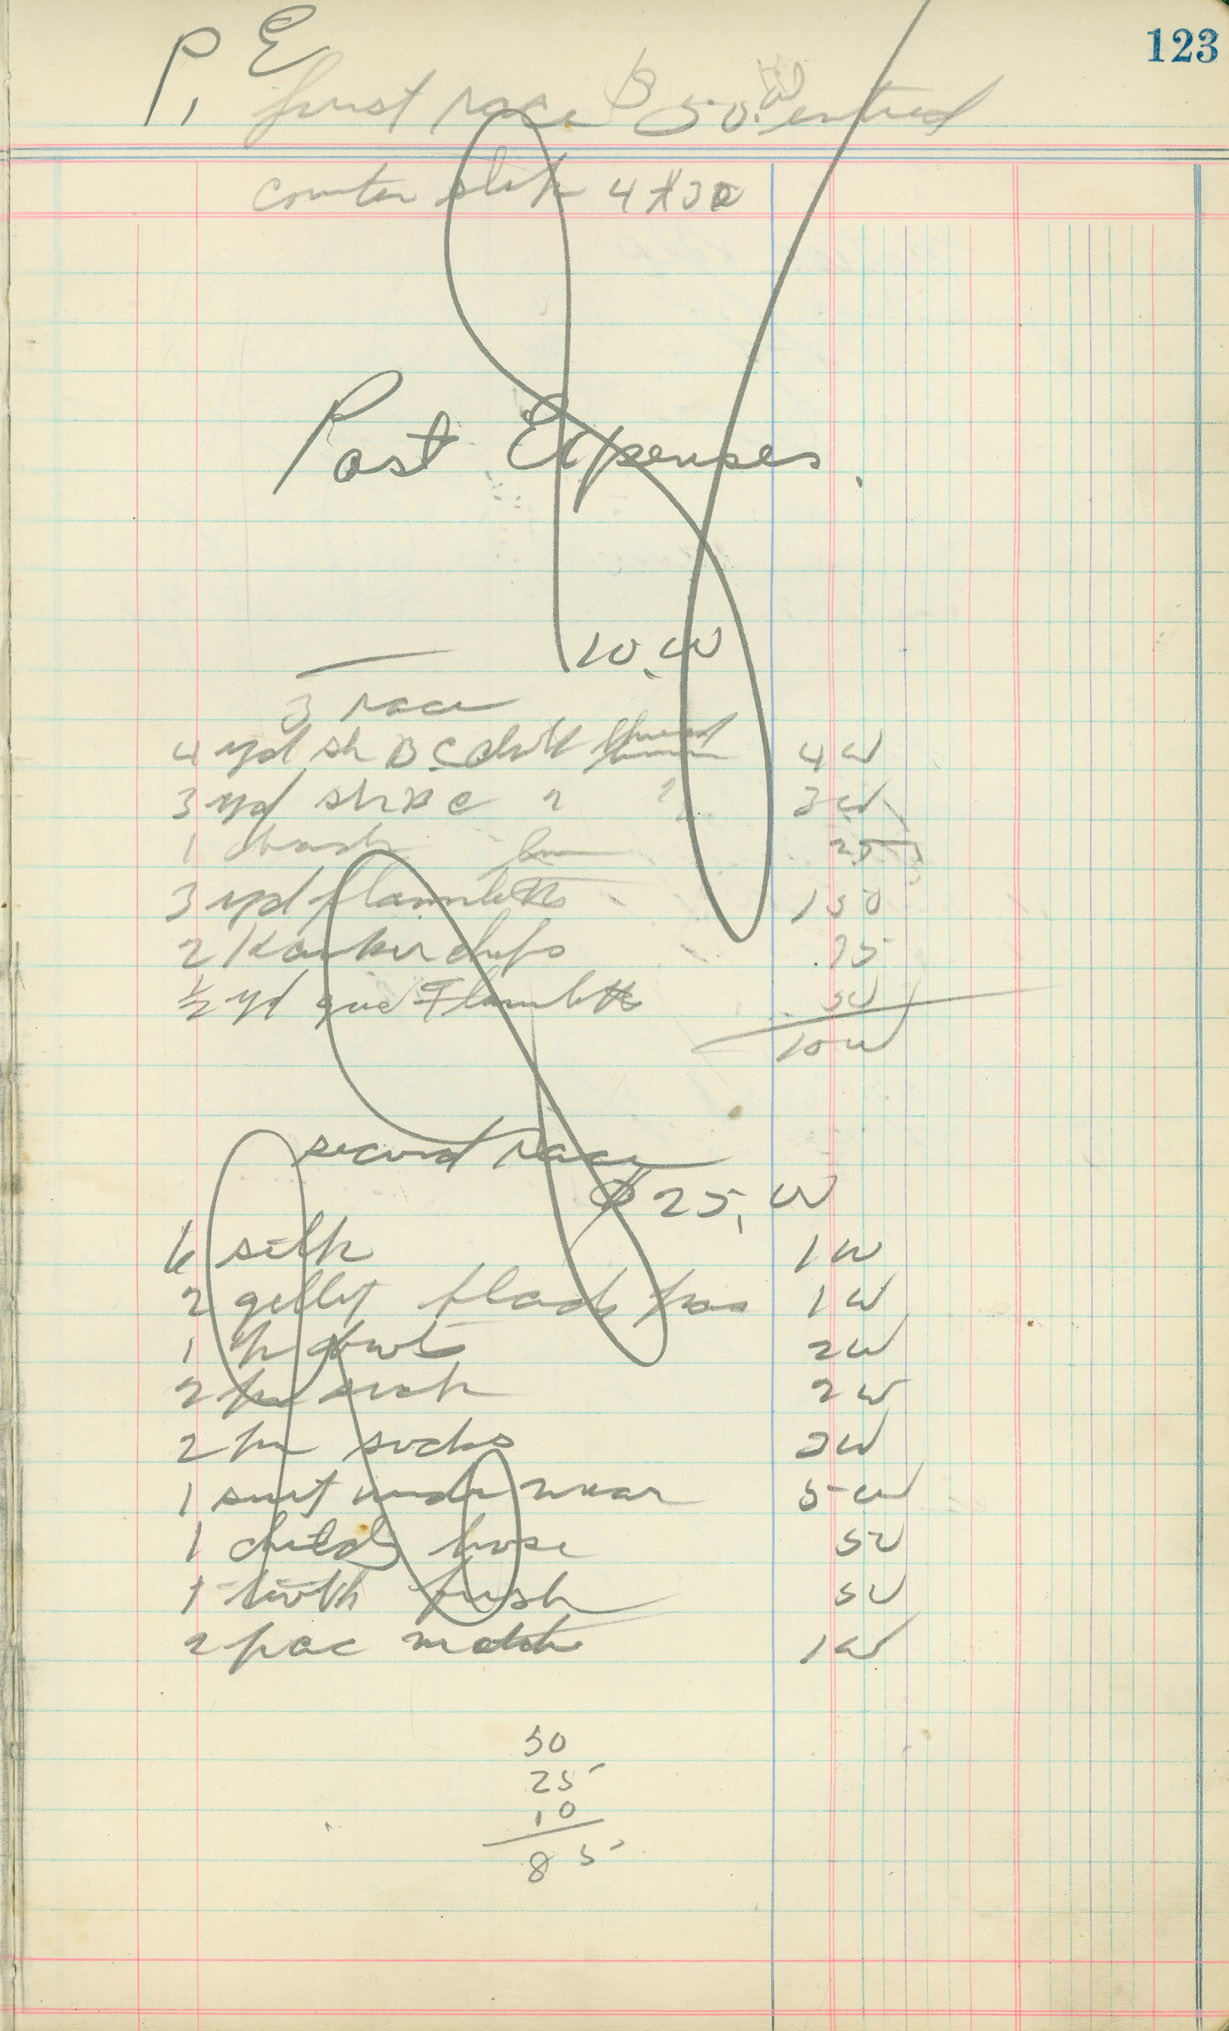 123
P. E
first race $50.00 entred
counter slip 4
Post Expenses.
10.00
3 race
4 yd str B C 400
3 yd str B C " " 300
1 25
3 yd flannlette 150
2 Kankerchifs .75
½ yd Flannlette 50
1000
second race
$25,00
6 silk 100
2 100
1 pr 200
2 pr 200
2 pr socks 200
1 suit under wear 500
1 childs hose 50
1 tooth brush 50
2 pac match 100
50
25
10
85